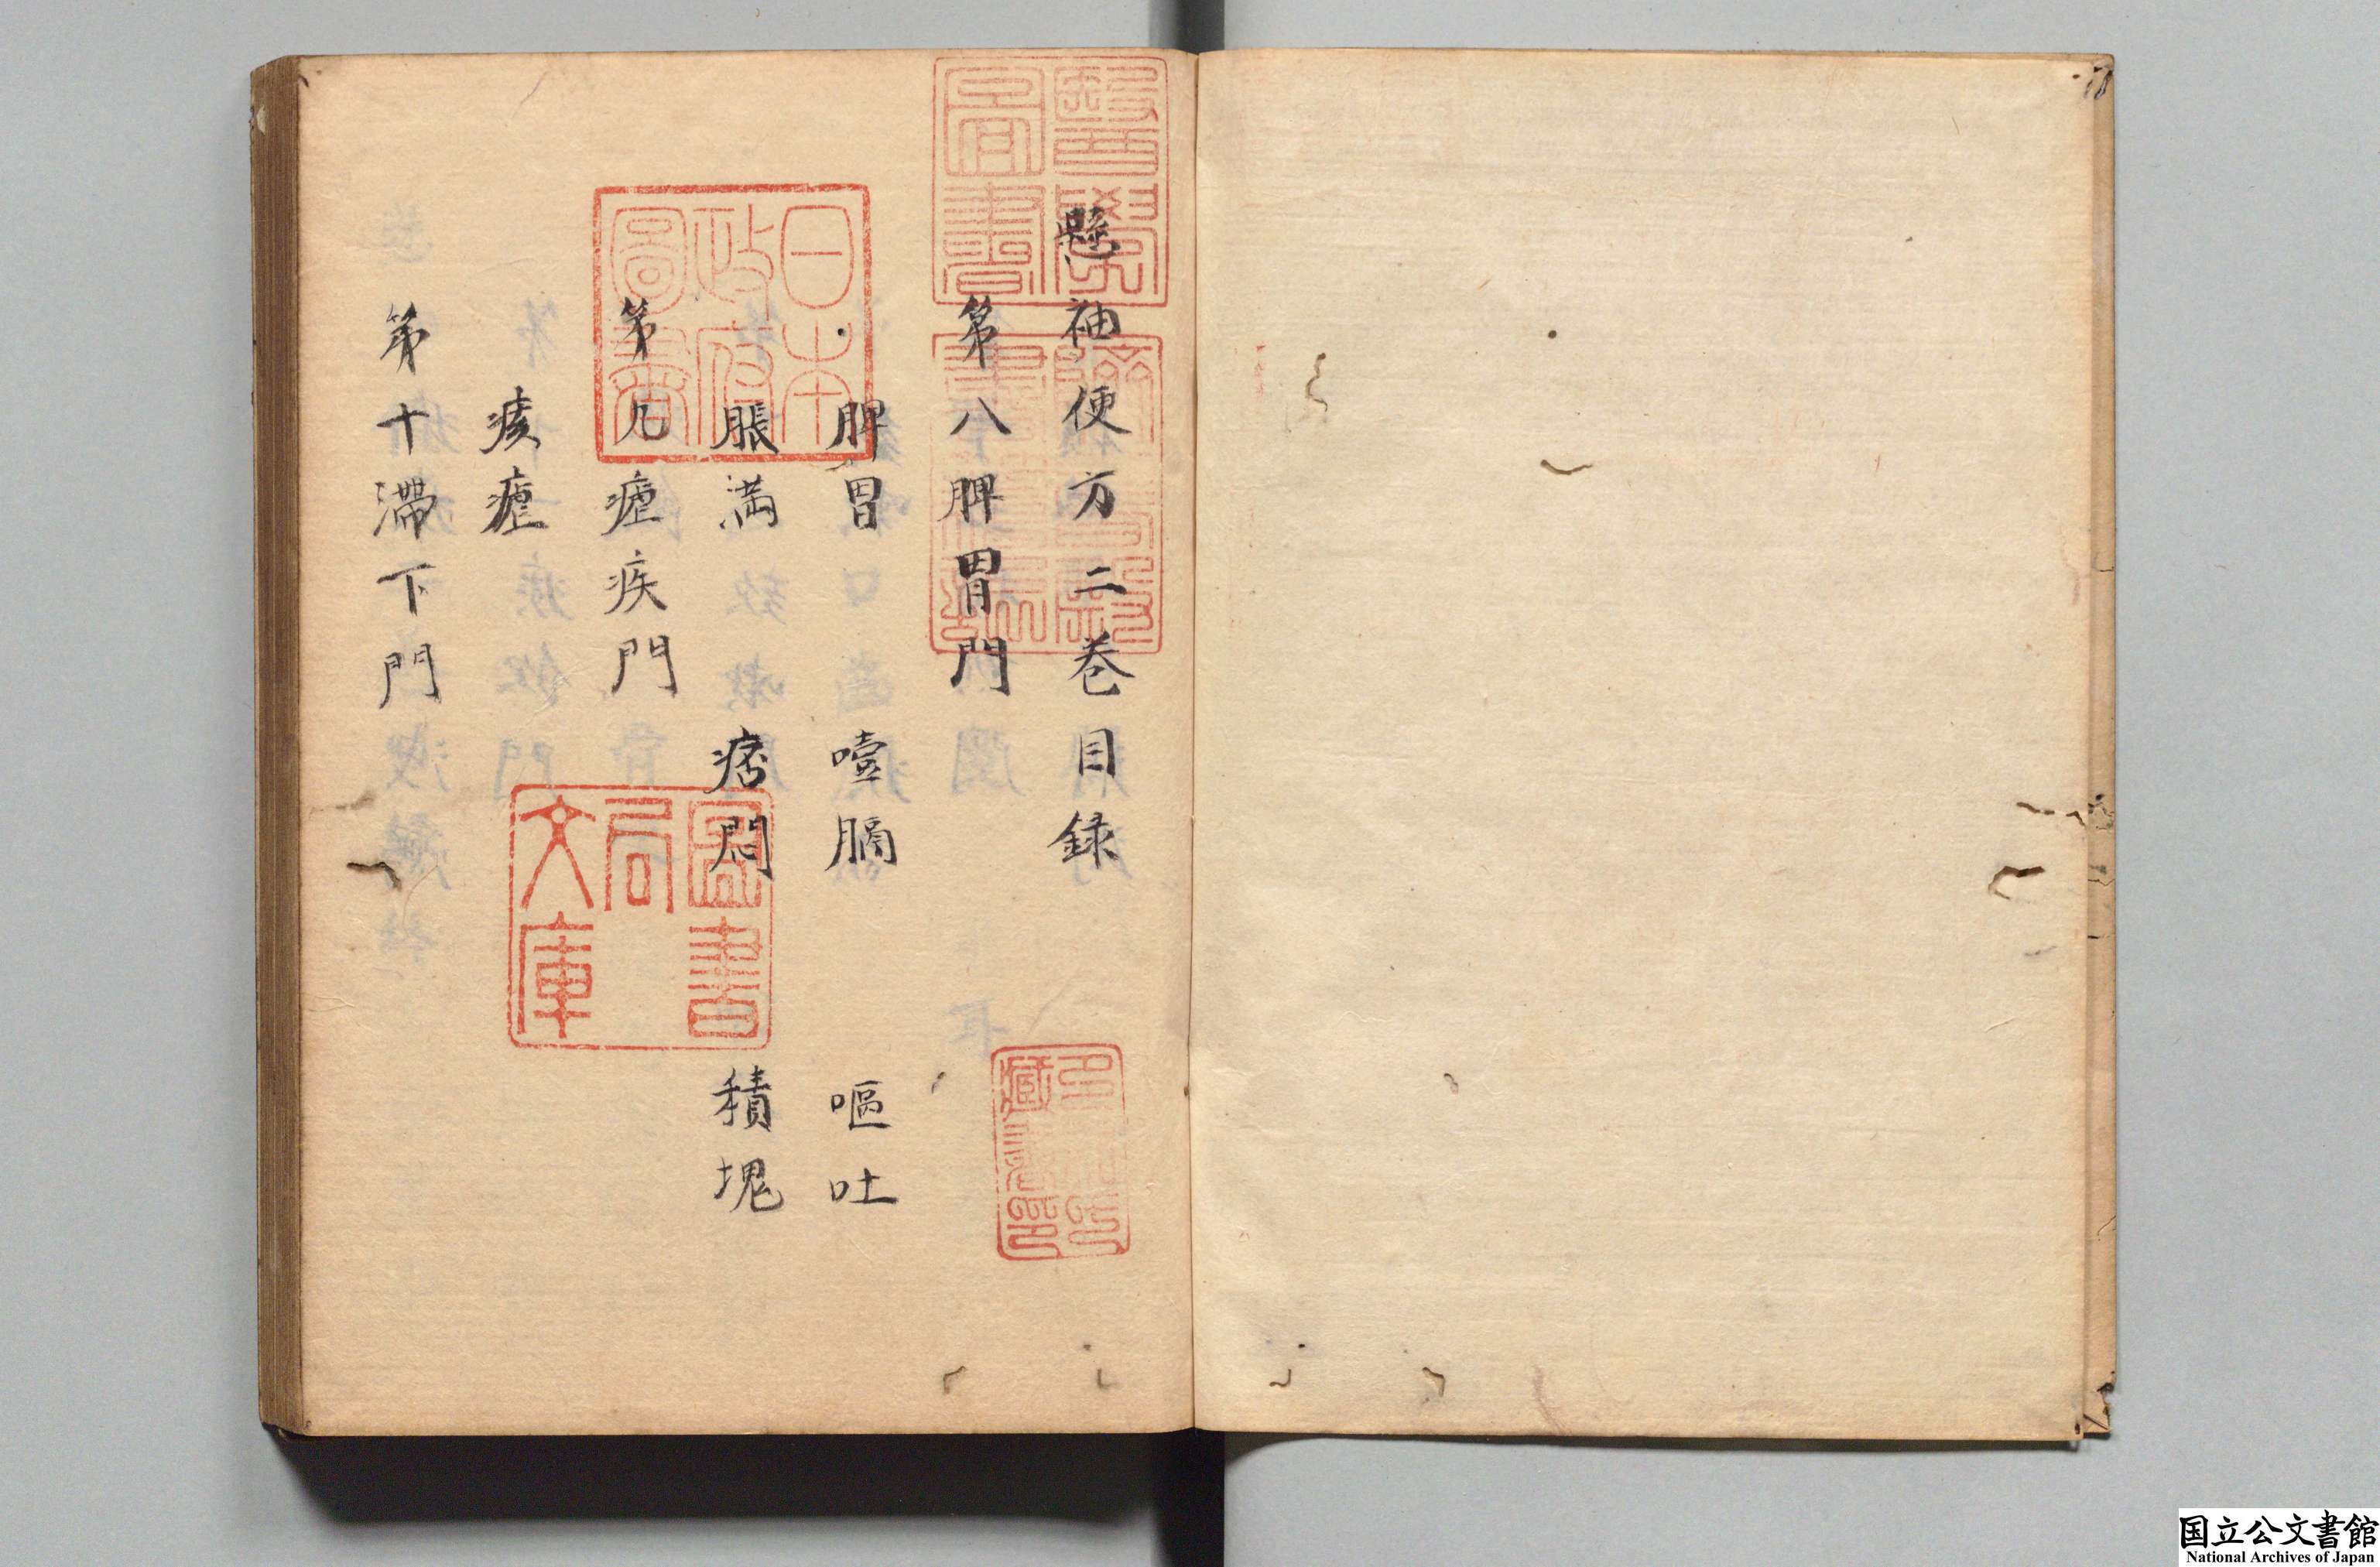 懸袖便方二巻目録
第八脾胃門
脾胃　噎膈　嘔吐
脹満　痞悶　積塊
第九瘧疾門
痎瘧
第十滞下門
醫學圖書
日本政府圖書
圖書局文庫
国立公文書館
National Archives of Japan